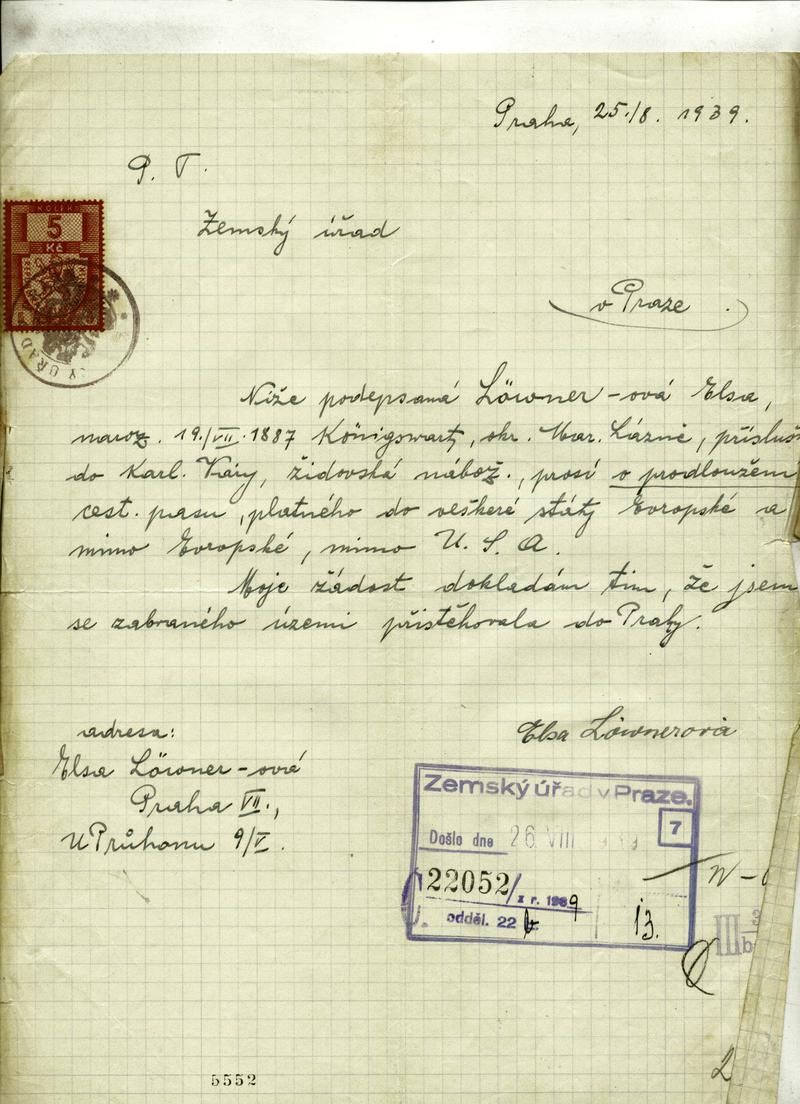 Praha, 25./8. 1939.
P. T.
KOLEK
5
Kč
Zemský úřad
v Praze.
Níže podepsaná Löwner-ová Elsa,
naroz. 19./VII. 1887 Königswart, okr. Mar. Lázně, přísluš
do Karl. Váry, židovská nábož., prosí o prodloužení
cest. pasu, platného do veškeré státy Evropské a
mimo Evropské, mimo U. S. A.
Moje žádost dokladám tim, že jsem
se zabraného území přistěhovala do Prahy.
adresa:
Elsa Löwnerová
Elsa Löwner-ová
Praha VII.,
U Průhonu 9/V.
Zemský úřad v Praze.
7
Došlo dne 26 VIII
22052/z r. 1939
odděl. 22
13.
III
5552
2